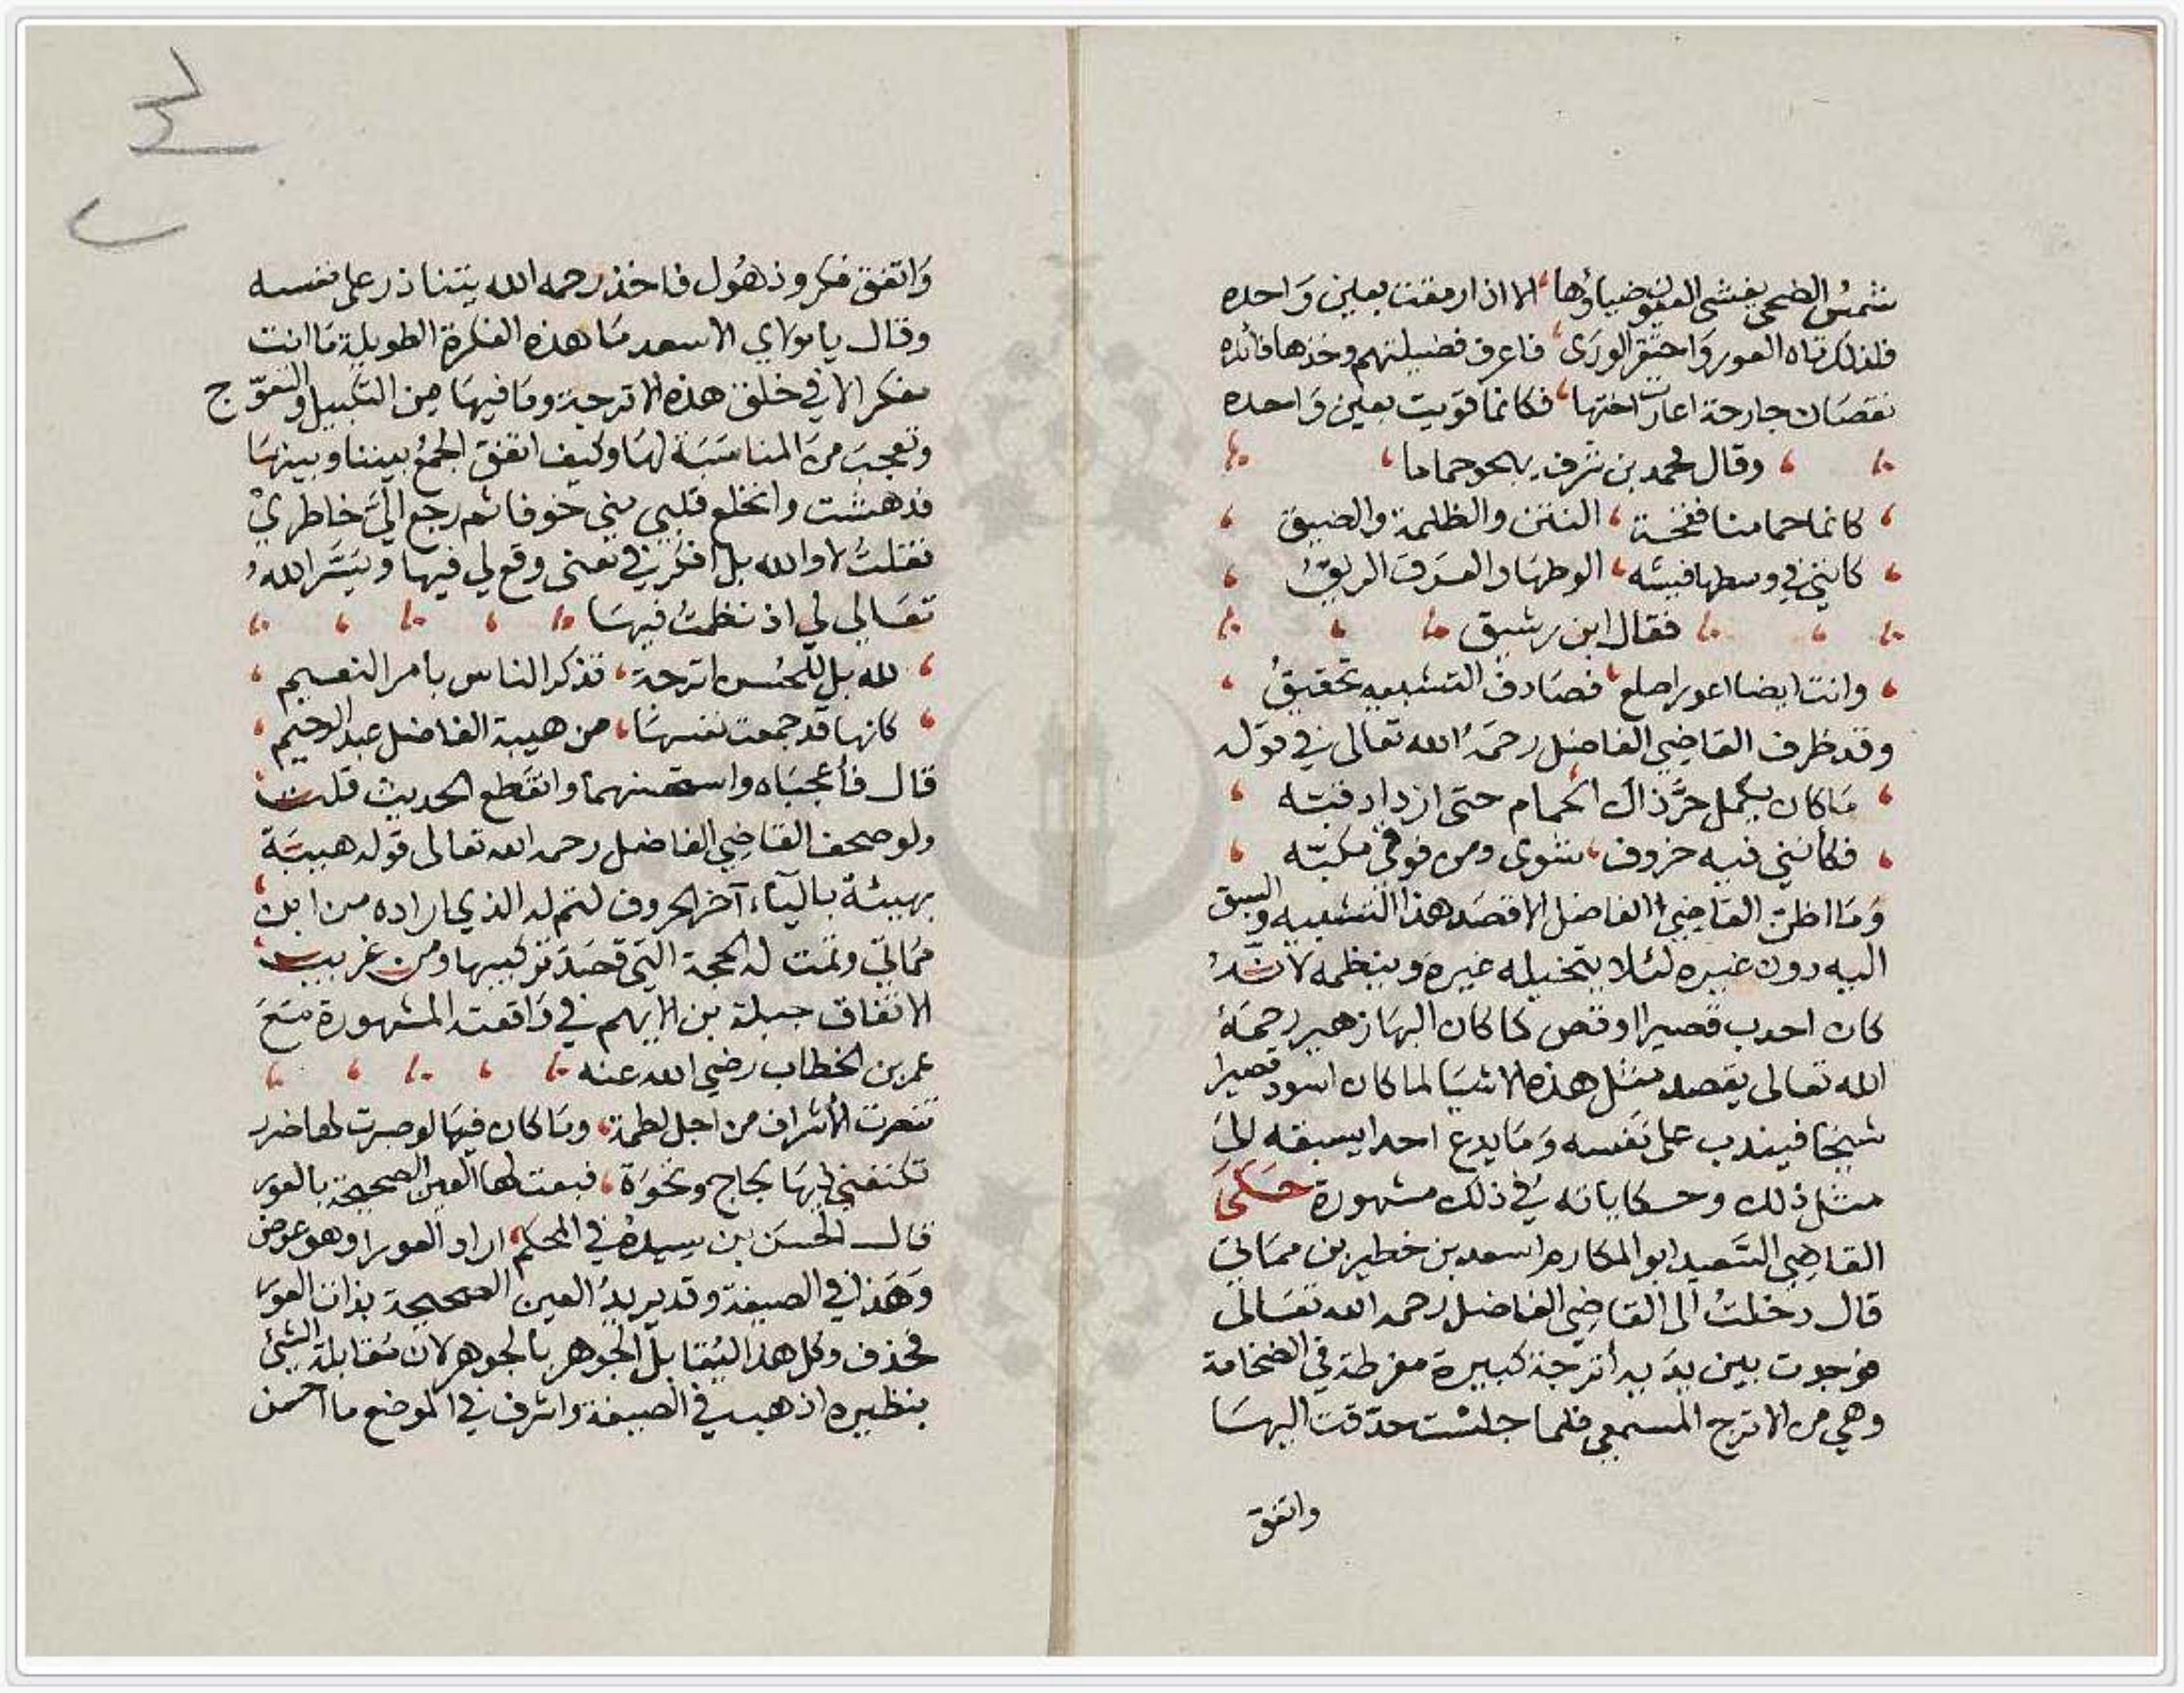 شمس الضحى يغشى العيون ضياؤها الا اذا رمقت بعين واحده
فلذلك تاه العور واحتقر الورى فاعرف فضيلتهم وخذها فائده
نقصان جارحة اعارت اختها فكانما قويت بعين واحده
وقال محمد بن شرف يهجو حماما
كانما حمامنا فقحة النتن والظلمة والضيق
كانني في وسطها فيشة الوطها والعرق الريق
فقال ابن رشيق
وانت ايضا اعور اصلع فصادف التشبيه تحقيق
وقد ظرف القاضي الفاضل رحمه الله تعالى في قوله
ما كان يكمل حر ذاك الحمام حتى ازداد فبته
فكانني فيه خروف شوى ومن فوقي مكبته
وما اظن القاضي الفاضل الا قصد هذا التشبيه والسبق
اليه دون غيره لئلا يتخيله غيره وينظمه لانه
كان احدب قصيرا اوقص كما كان البها زهير رحمه
الله تعالى يقصد مثل هذه الاشيا لما كان اسود قصيرا
شيخا فيندب على نفسه وما يدع احدا يسبقه الى
مثل ذلك وحكاياته في ذلك مشهورة حكى
القاضي السعيد ابو المكارم اسعد بن خطير بن مماتي
قال دخلت الى القاضي الفاضل رحمه الله تعالى
فوجدت بين يديه أترجة كبيرة مفرطة في الضخامة
وهي من الاترج المسمعي فلما جلست حدقت اليها
واتفق
واتفق فكر وذهول فاخذ رحمه الله يتنادر على نفسه
وقال يا مولاي الاسعد ما هذه الفكرة الطويلة ما انت
مفكر الا في خلق هذه الاترجة وما فيها من التكبيل والتعوج
وتعجب من المناسبة لها وكيف اتفق الجمع بيننا وبينها
فدهشت وانخلع قلبي مني خوفا ثم رجع الي خاطري
فقلت لا والله بل افكر في معنى وقع لي فيها ويسر الله
تعالى لي اذ نظمت فيها
لله بل للحسن اترجة تذكر الناس بأمر النعيم
كانها قد جمعت نفسها من هيبة الفاضل عبد الرحيم
قال فأعجباه واستحسنهما وانقطع الحديث قلت
ولو صحف القاضي الفاضل رحمه الله تعالى قوله هيبة
بهيئة بالياء آخر الحروف لتم له الذي اراده من ابن
مماتي وتمت له الحجة التي قصد تركيبها ومن غريب
الاتفاق جبلة بن الايهم في واقعته المشهورة مع
عمر بن الخطاب رضي الله عنه
تنصرت الأشراف من اجل لطمة وما كان فيها لو صبرت لها ضرر
تكنفني فيها لجاج ونخوة فبعت لها العين الصحيحة بالعور
قال الحسن بن سيده في المحكم اراد العورا وهو عوض
وهذا في الصيغة وقد يريد العين الصحيحة بذات العور
فحذف وكل هذا ليقابل الجوهر بالجوهر لان مقابلة الشيئ
بنظيره اذهب في الصيغة واشرف في الموضع ما احسن